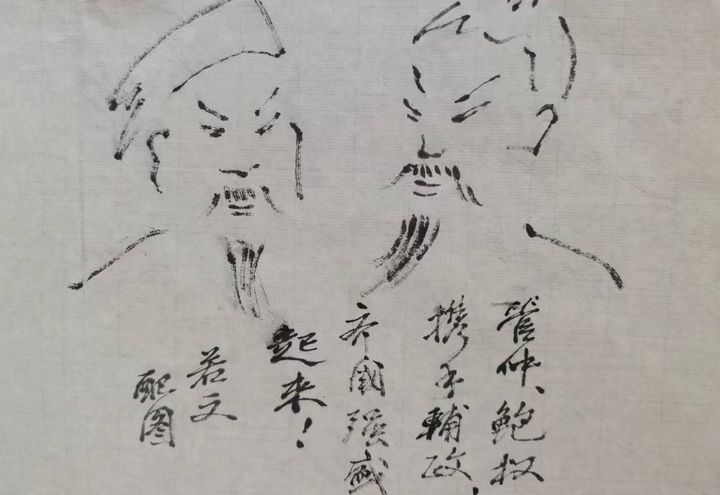 管仲、鲍叔
携手輔政,
齐國强盛
起来!
若文
配图